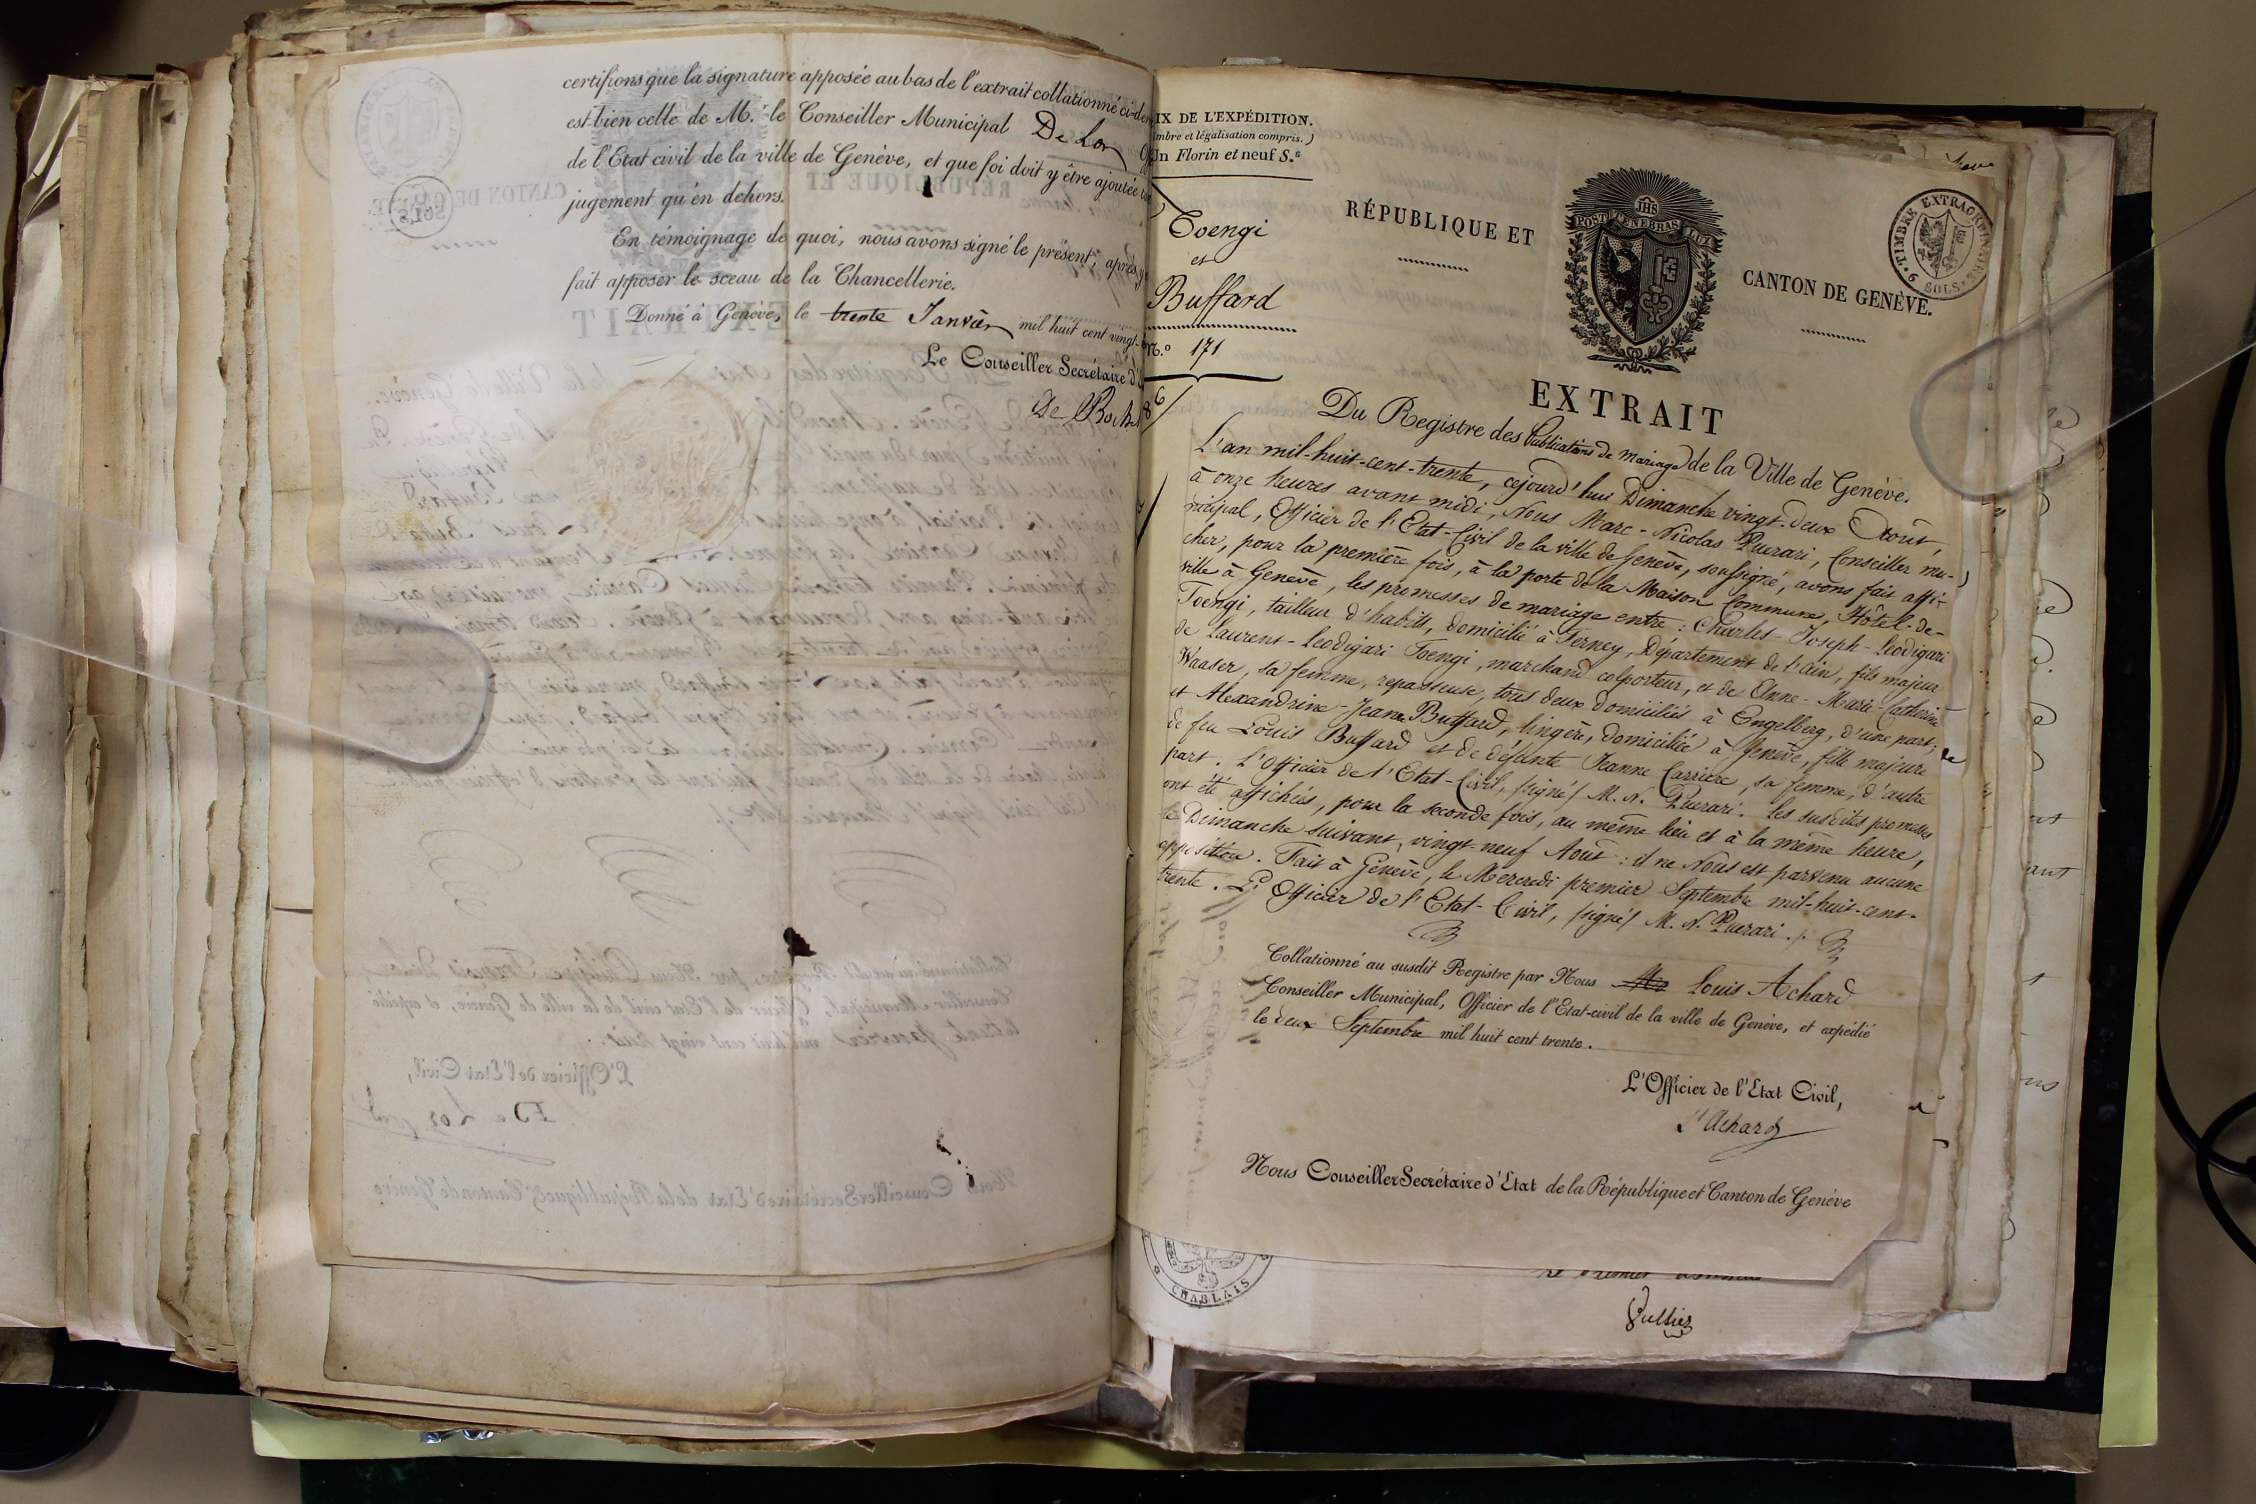 certifions que la signature apposée au bas de l'extrait collationné ci-de
est bien celle de M.r le Conseiller Municipal De Lor
de l'Etat civil de la ville de Genève, et que foi doit y être ajoutée
jugement qu'en dehors.
En témoignage de quoi, nous avons signé le présent, après y
fait apposer le sceau de la Chancellerie.
Donné à Genève, le trente Janvier mil huit cent vingt-
Le Conseiller Secrétaire d'
De Roch
IX DE L'EXPÉDITION.
imbre et légalisation compris.)
Un Florin et neuf S.s
Toengi
et
Buffard
N.o 171
RÉPUBLIQUE ET
POST TENEBRAS LUX
IHS
CANTON DE GENÈVE.
TIMBRE EXTRAORDINAIRE
6 SOLS
EXTRAIT
Du Registre des Publications de Mariage de la Ville de Genève.
L'an mil-huit-cent-trente, cejourd'hui Dimanche vingt-deux Août,
à onze heures avant midi, Nous Marc-Nicolas Puerari, Conseiller mu-
nicipal, Officier de l'Etat-Civil de la ville de Genève, soussigné, avons fait affi-
cher, pour la première fois, à la porte de la Maison Commune, Hôtel-de-
ville à Genève, les promesses de mariage entre: Charles-Joseph-Leodigari
Toengi, tailleur d'habits, domicilié à Ferney, Département de l'Ain, fils majeur
de Laurent-Leodigari Toengi, marchand colporteur, et de Anne-Marie-Catherine
Waaser, sa femme, repasseuse, tous deux domiciliés à Engelberg, d'une part;
et Alexandrine-Jeanne Buffard, lingère, domiciliée à Genève, fille majeure
de feu Louis Buffard et de défunte Jeanne Carrière, sa femme, d'autre
part. L'Officier de l'Etat-Civil, /signé/ M. N. Puerari. Les susdites promesses
ont été affichées, pour la seconde fois, au même lieu et à la même heure,
le Dimanche suivant, vingt-neuf Août: il ne Nous est parvenu aucune
opposition. Fait à Genève, le Mercredi premier Septembre mil-huit-cent-
trente. L'Officier de l'Etat-Civil, /signé/ M. N. Puerari./.
Collationné au susdit Registre par Nous Louis Achard
Conseiller Municipal, Officier de l'Etat-civil de la ville de Genève, et expédié
le deux Septembre mil huit cent trente.
L'Officier de l'Etat Civil,
L. Achard
Nous Conseiller Secrétaire d'Etat de la République et Canton de Genève
CHABLAIS